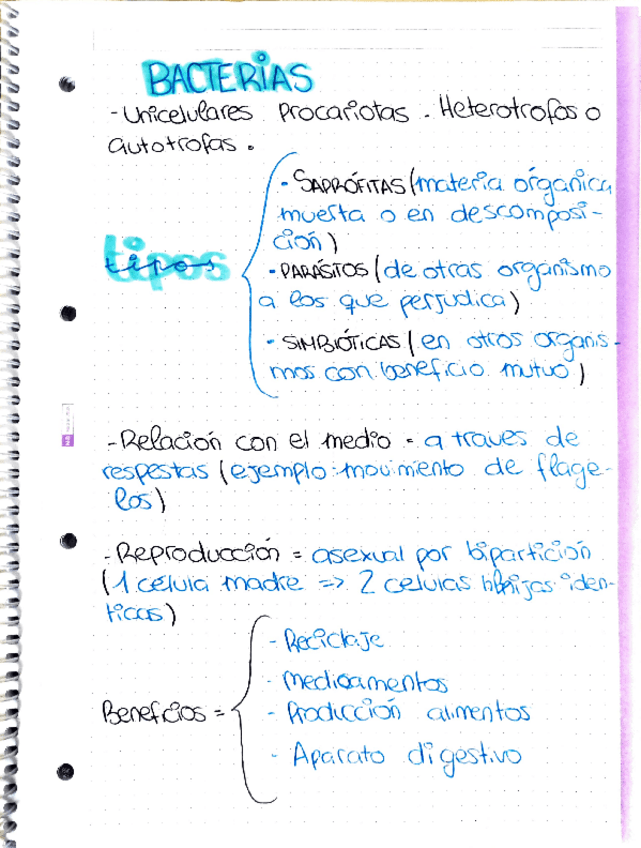 BACTERIAS
- Unicelulares Procariotas - Heterotrofos o
autotrofas.
tipos
- SAPRÓFITAS (materia orgánica
muerta o en descomposi-
ción)
- PARÁSITOS (de otras organismo
a los que perjudica)
- SIMBIÓTICAS (en otros organis-
mos con beneficio mutuo)
- Relación con el medio = a traves de
respestas (ejemplo: movimiento de flage-
los)
- Reproducción = asexual por bipartición
(1 célula madre => 2 celulas hijas iden-
ticas)
Beneficios =
- Reciclaje
- Medicamentos
- Producción alimentos
- Aparato digestivo